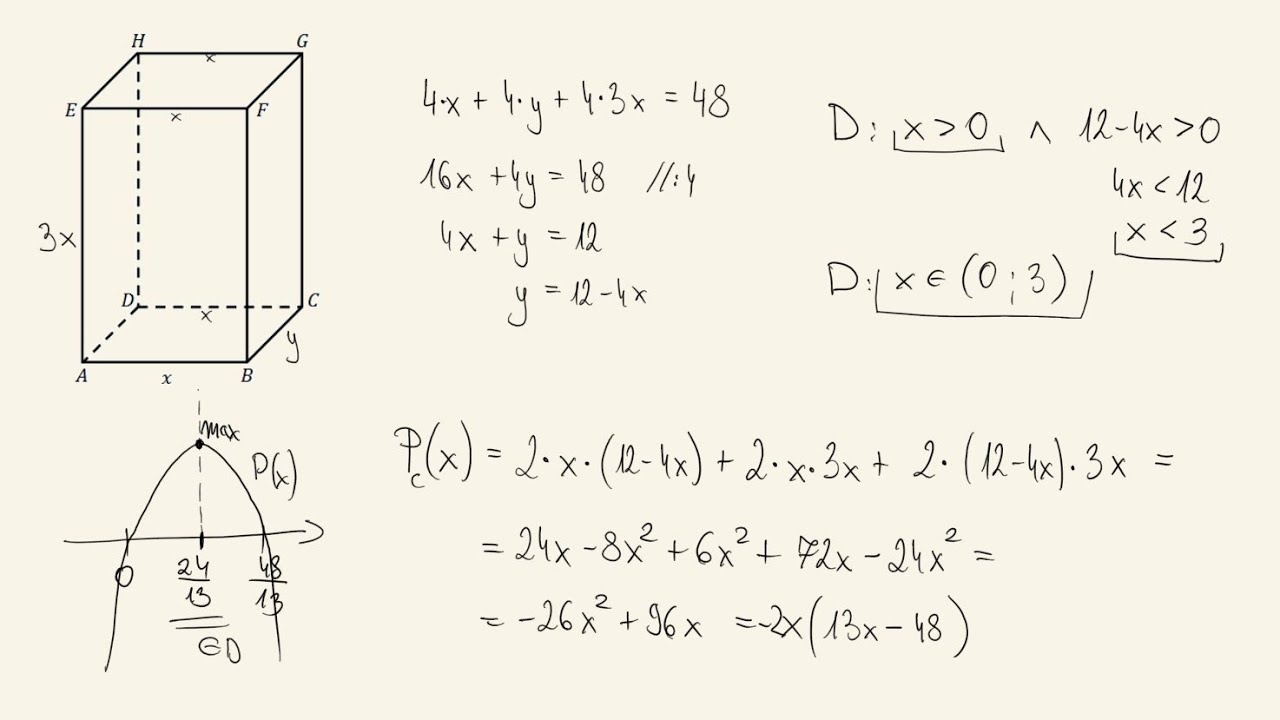 H G
x
E F
x
3x
D C
x
y
A x B
4·x + 4·y + 4·3x = 48
16x + 4y = 48 //:4
4x + y = 12
y = 12-4x
D: x > 0 ∧ 12-4x > 0
4x < 12
x < 3
D: x ∈ (0 ; 3)
max
P(x)
0 24/13 48/13
∈D
P_c(x) = 2·x·(12-4x) + 2·x·3x + 2·(12-4x)·3x =
= 24x - 8x² + 6x² + 72x - 24x² =
= -26x² + 96x = -2x(13x - 48)